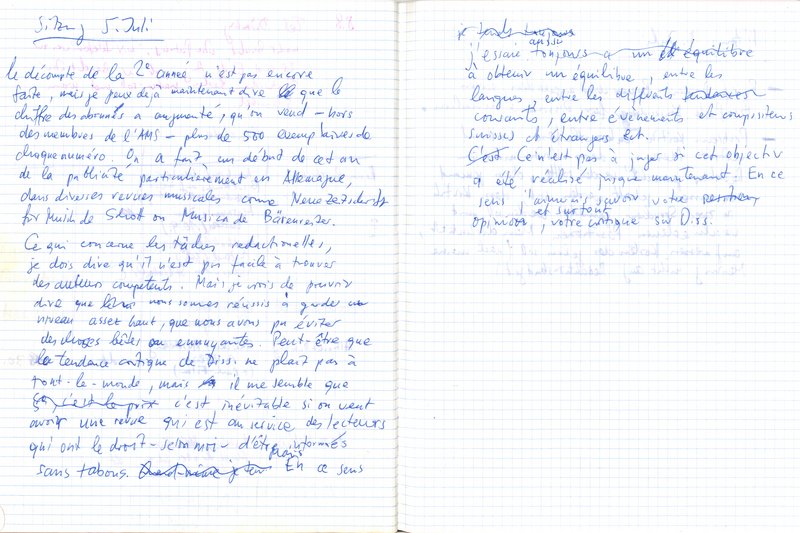 Sitzung 5. Juli
le décompte de la 2e anneé n'est pas encore
faite, mais je peux déjà maintenant dire que le
chiffre des abonnés a augmenté, qu'on vend – hors
des membres de l'AMS – plus de 500 exemplaires de
chaque numéro. On a fait un début de cet an
de la publicité particulièrement en Allemagne,
dans diverses revues musicales comme Neue Zeitschrift
für Musik de Schott ou Musica de Bärenreiter.
Ce qui concerne les tâches redactionelles,
je dois dire qu'il n'est pas facile à trouver
des auteurs compétents. Mais je crois de pouvoir
dire que nous sommes réussis à garder un
niveau assez haut, que nous avons pu éviter
des choses bêtes ou ennuyantes. Peut-être que
la tendance critique de Diss. ne plaît pas à
tout-le-monde, mais il me semble que
c'est le prix c'est inévitable si on veut
avoir une revue qui est au service des lecteurs
qui ont le droit – selon moi – d'être informés
sans tabous. mais En ce sens
je tends toujours
j'essaie aussi toujours a un équilibre
à obtenir un équilibre, entre les
langues, entre les différents tendances
courants, entre évènements et compositeurs
suisses et étrangers etc.
C'est Ce n'est pas à juger si cet objectif
a été réalisé jusque maintenant. En ce
sens j'aimerais savoir votre
opinion, et surtout votre critique sur Diss.